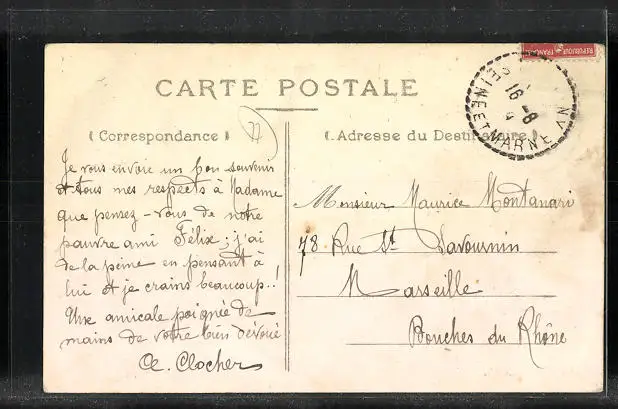 REPUBLIQUE FRANÇAISE
CARTE POSTALE
(Correspondance)
77
(Adresse du Destinataire)
SEINE ET MARNE
16 - 8
Je vous envoie un bon souvenir
et tous mes respects à Madame
que pensez-vous de notre
pauvre ami Félix ; j'ai
de la peine en pensant à
lui et je crains beaucoup..!
Une amicale poignée de
mains de votre bien dévoué
Clocher
Monsieur Maurice Montanari
78 Rue St Savournin
Marseille
Bouches du Rhône